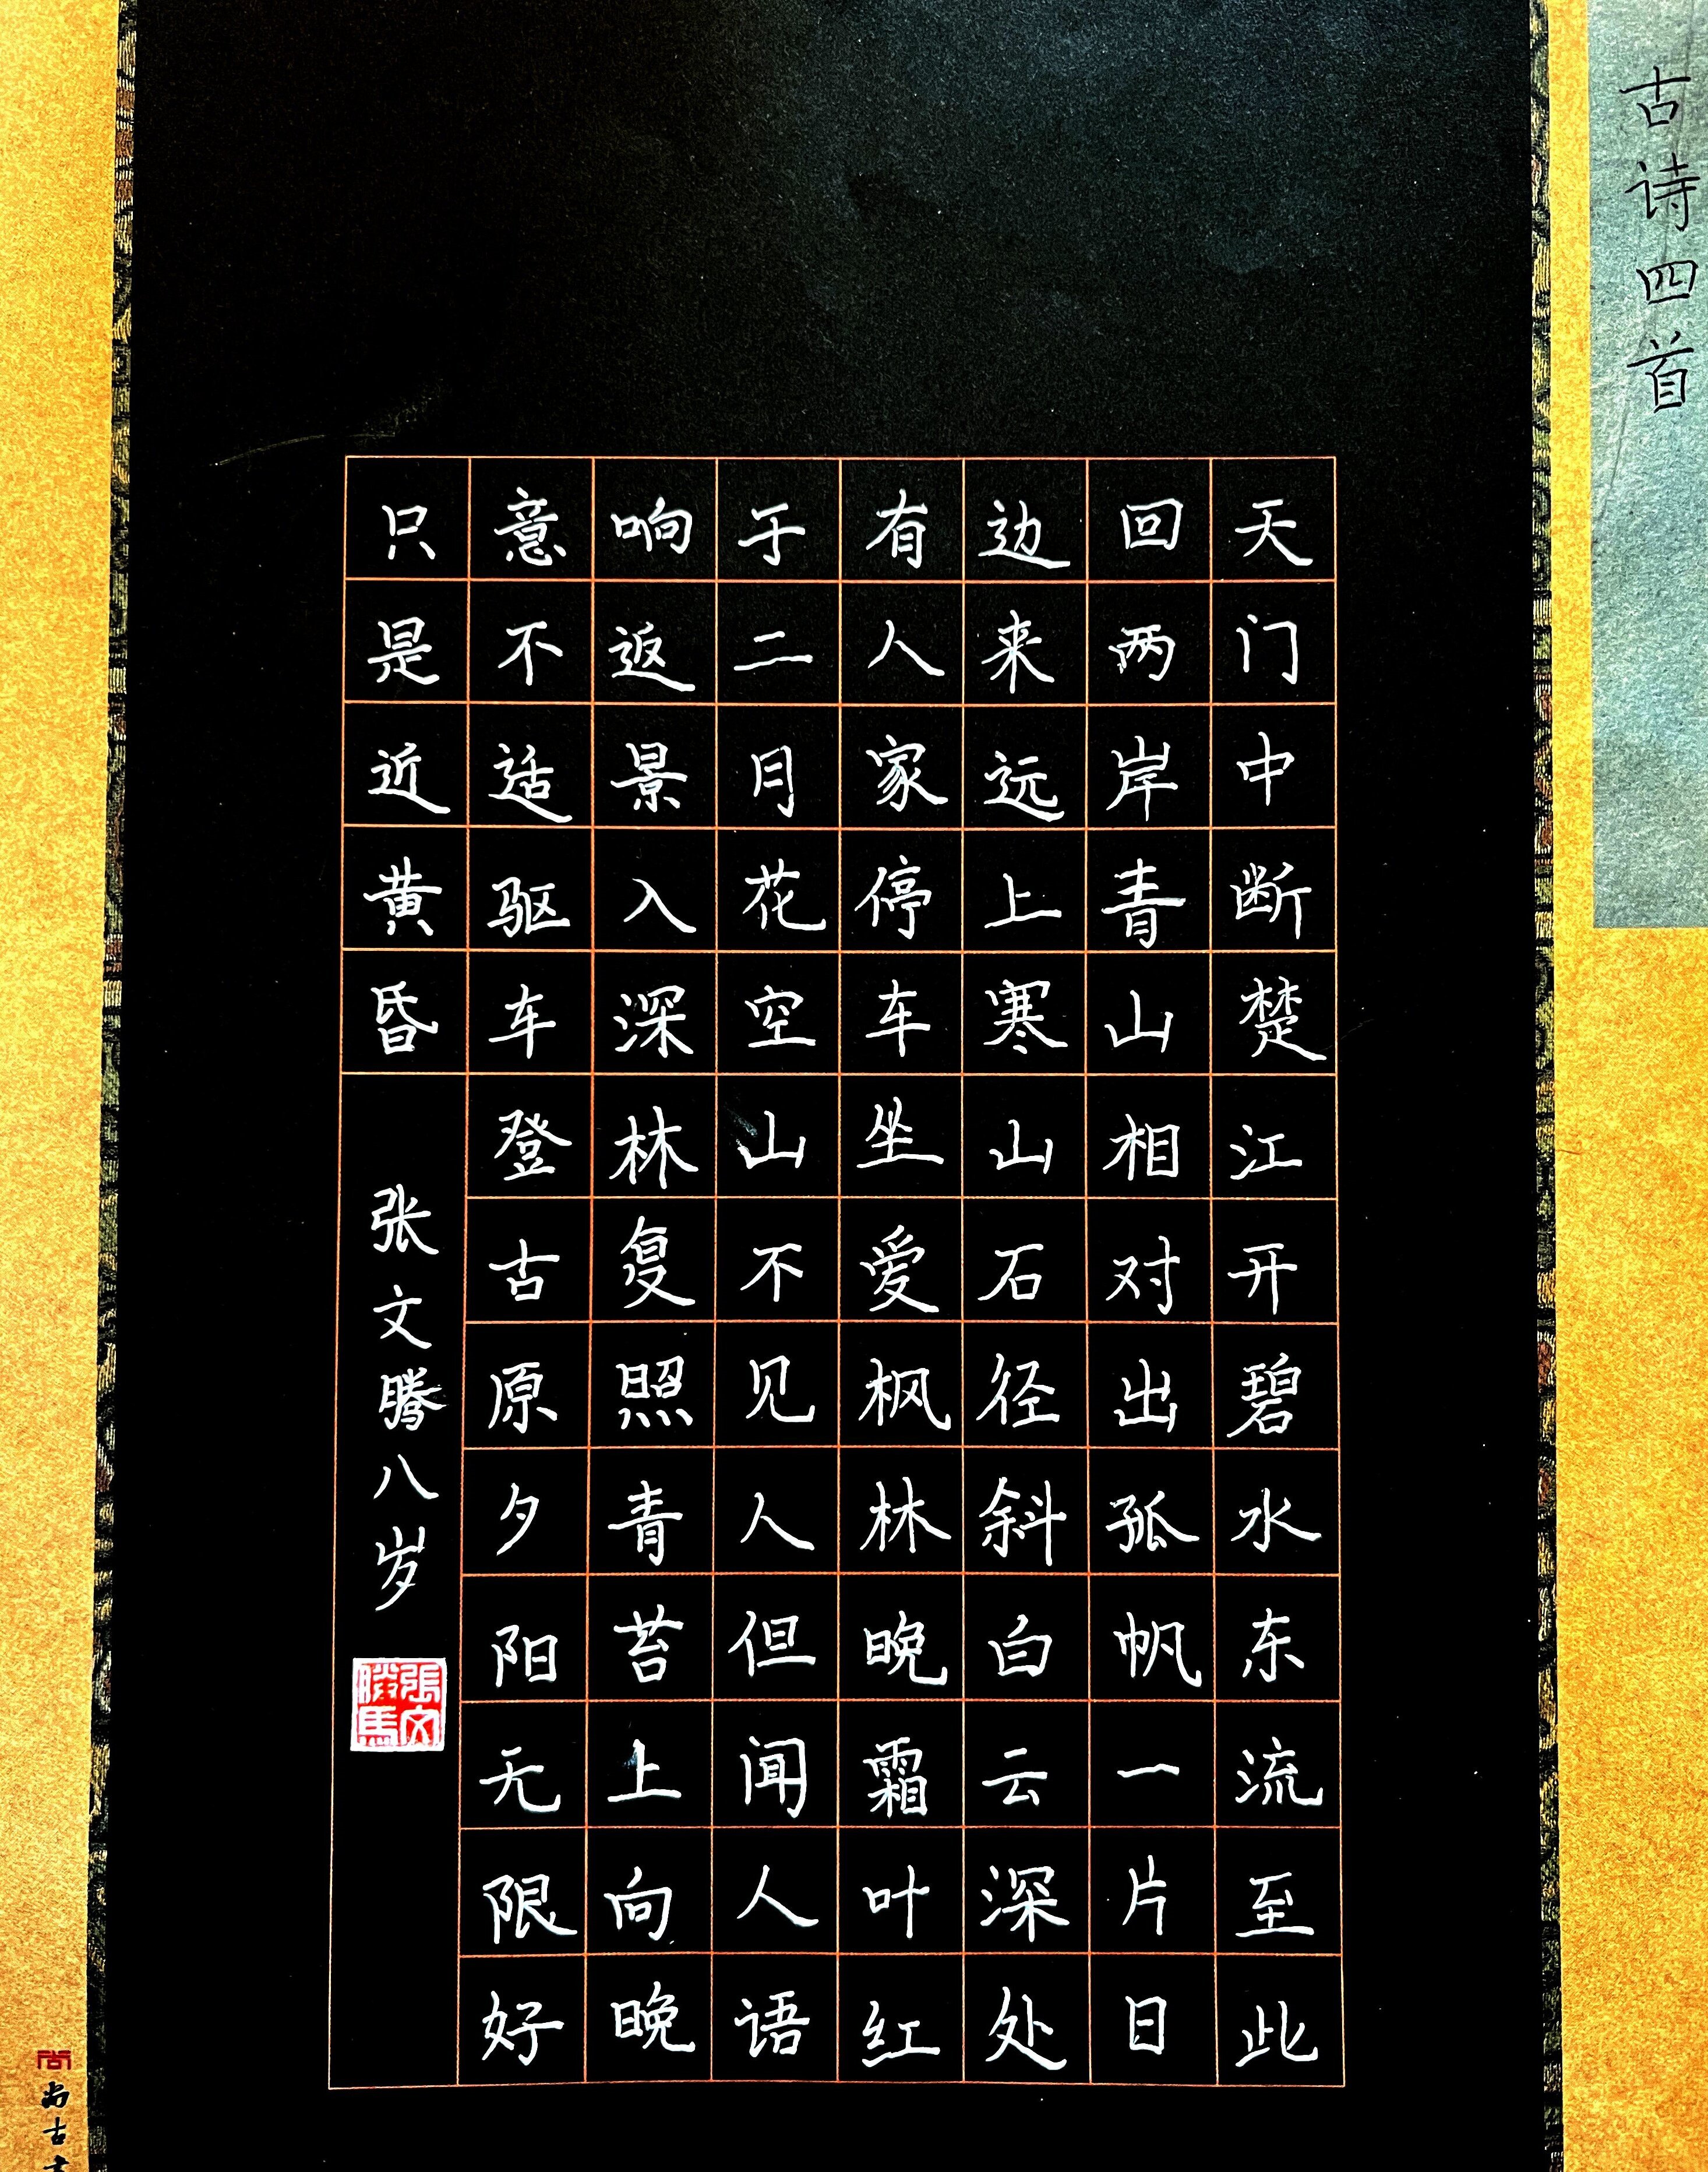 古诗四首
天门中断楚江开碧水东流至此
回两岸青山相对出孤帆一片日
边来远上寒山石径斜白云深处
有人家停车坐爱枫林晚霜叶红
于二月花空山不见人但闻人语
响返景入深林复照青苔上向晚
意不适驱车登古原夕阳无限好
只是近黄昏
张文腾八岁
張文騰
尚古